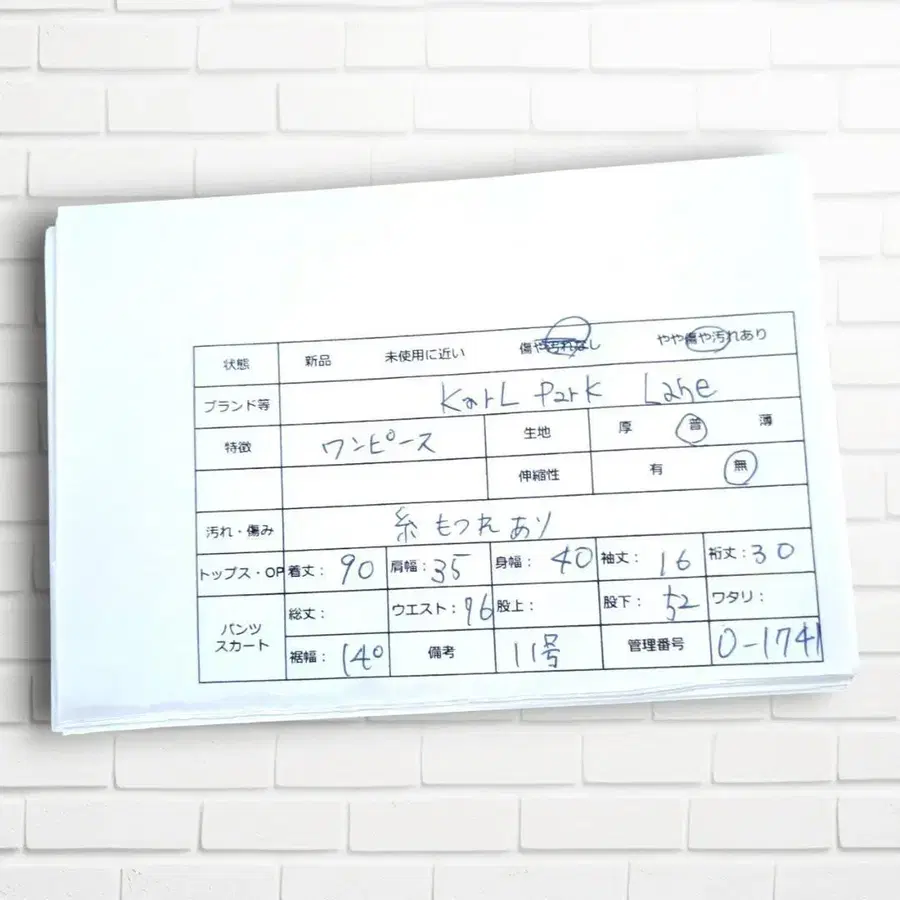 状態 新品 未使用に近い 傷や汚れなし やや傷や汚れあり
ブランド等 KarL Park Lane
特徴 ワンピース 生地 厚 普 薄
伸縮性 有 無
汚れ・傷み 糸もつれあり
トップス・OP 着丈: 90 肩幅: 35 身幅: 40 袖丈: 16 裄丈: 30
パンツ スカート 総丈: ウエスト: 96 股上: 股下: 52 ワタリ:
裾幅: 140 備考 11号 管理番号 O-1741